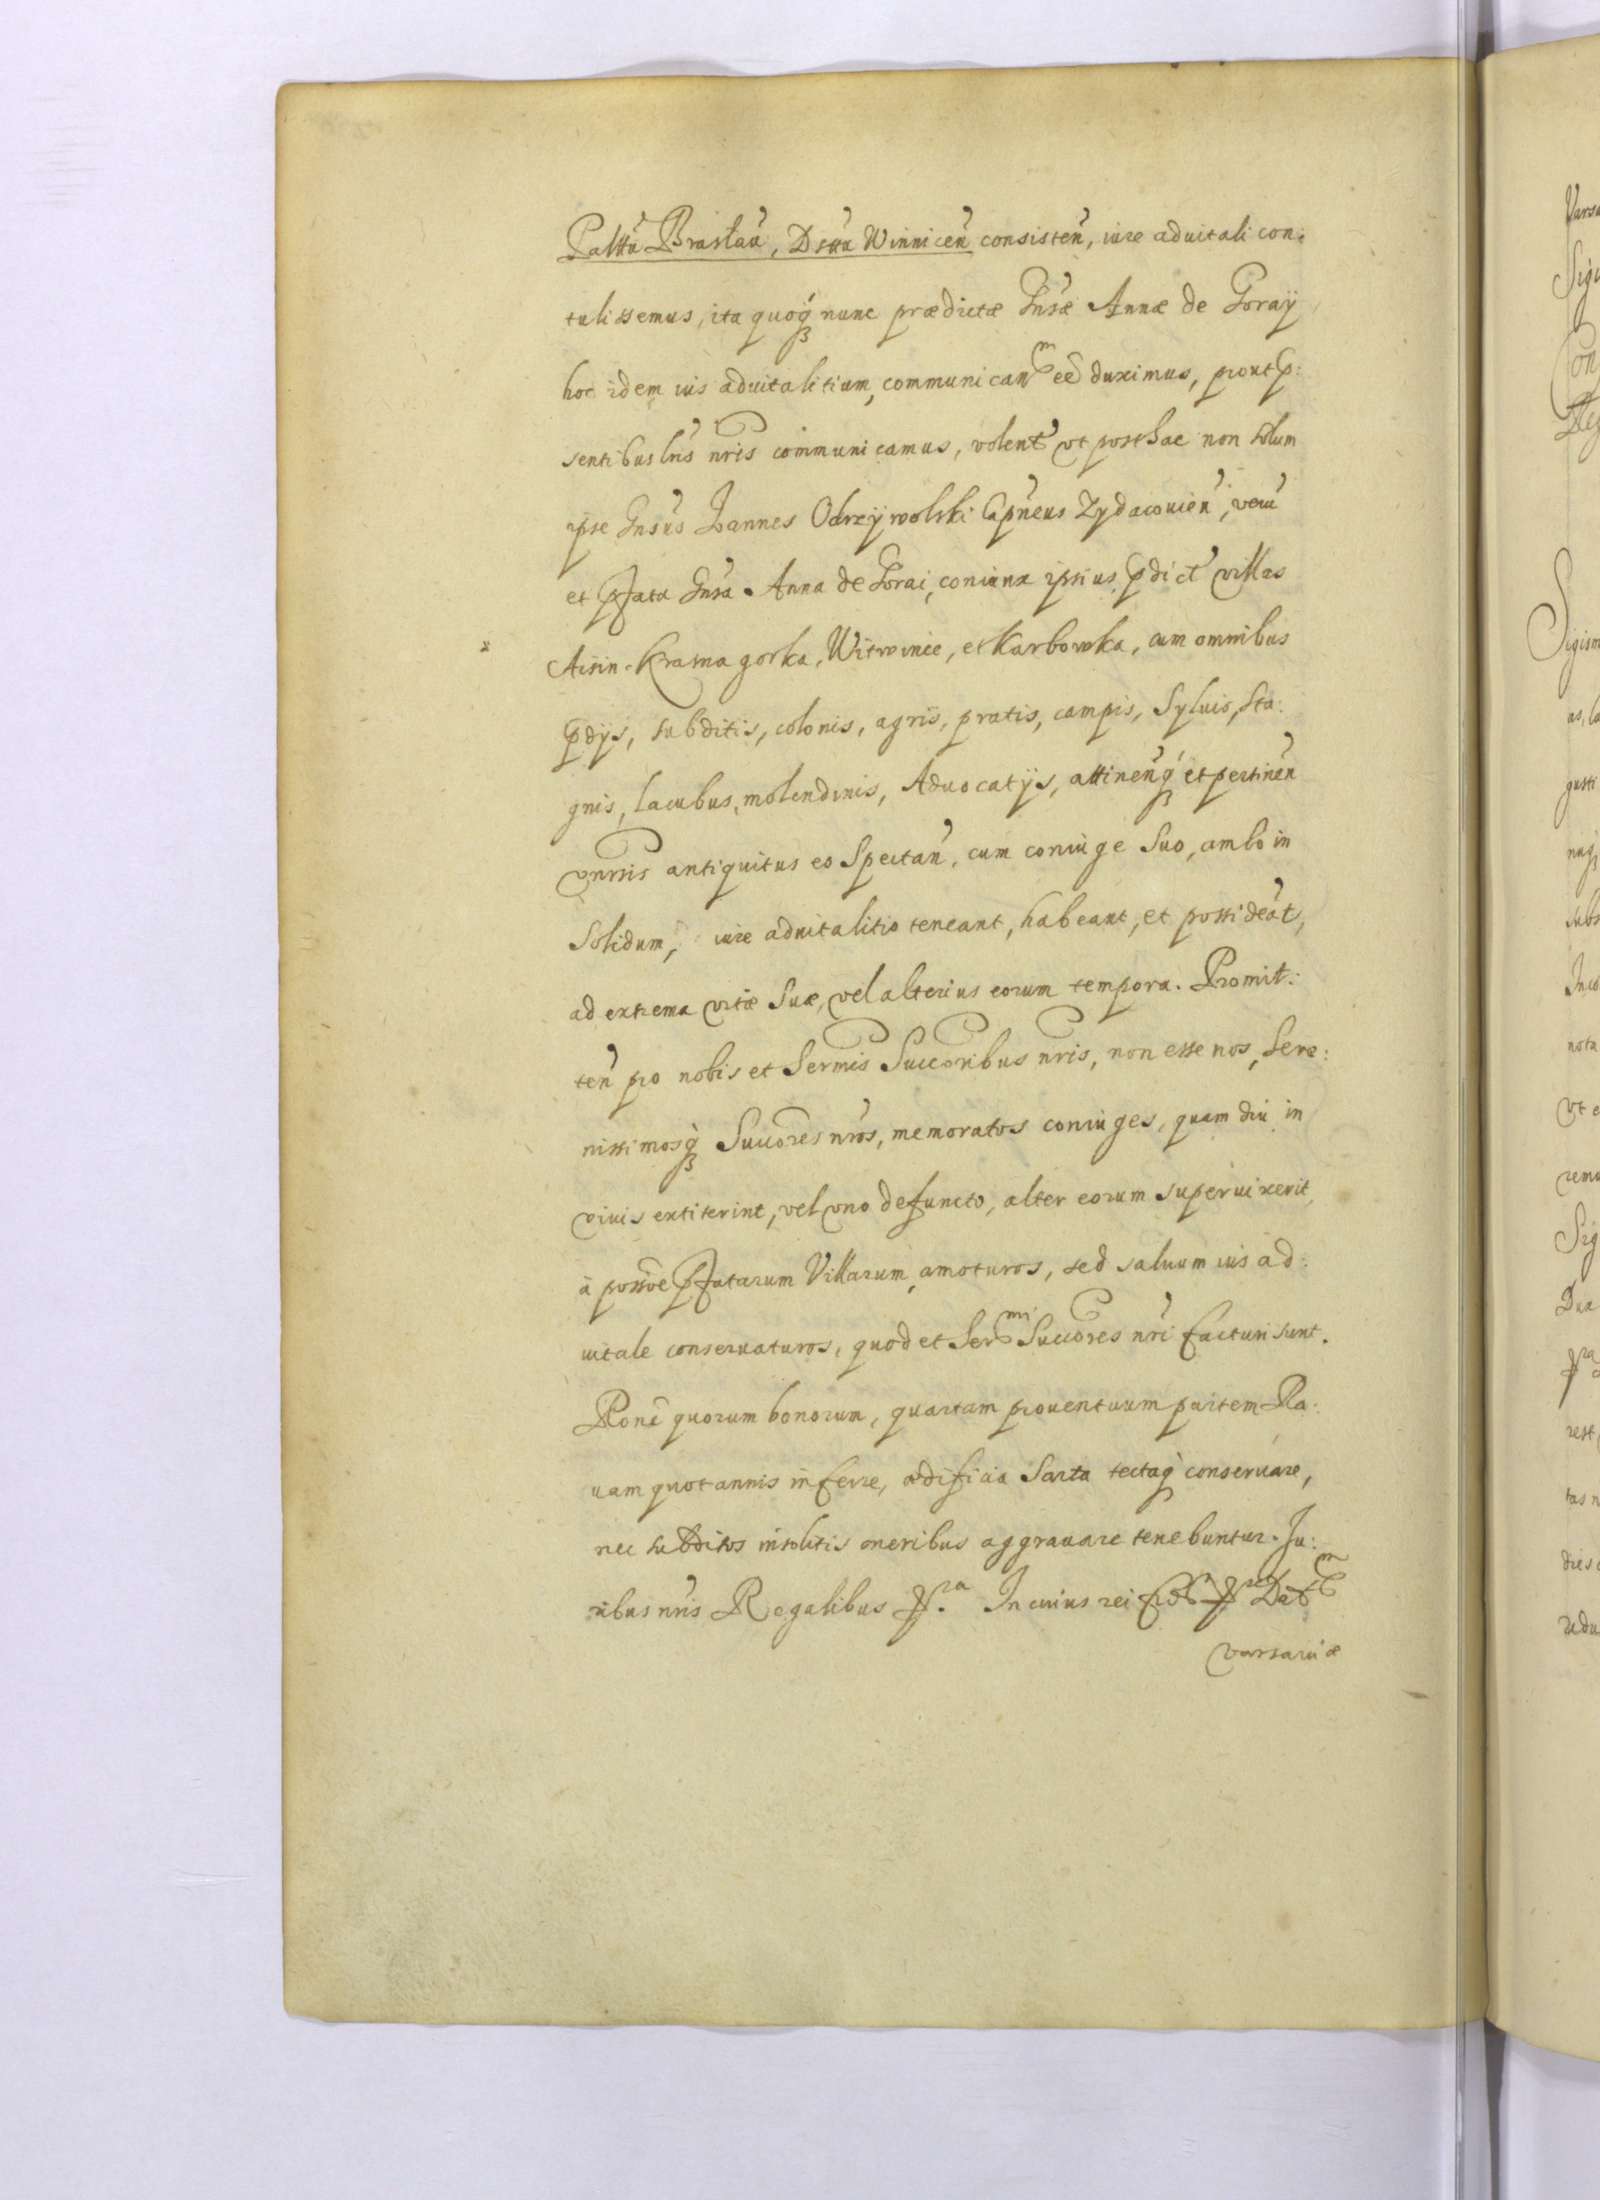 Palttũ Brasłaũ, Dsttu Winniceñ consisteñ, iure aduitali con:
tulissemus, ita quoq́ nunc prædictæ Gnsæ Annæ de Goraÿ
hoc idem ius aduitalitium, communicanm eẽ duximus, prout p:
sentibus lris nris communicamus, volent vt posthac non solum
ipse Gnsus Ioannes Odrzÿwolski Capneus Zydaczouieñ, verũ
et pfata Gnsa Anna de Gorai, coniunx ipsius pdict villas
Aisin. Krasna gorka, Witwince, et Karbowka, cum omnibus
pdÿs, subditis, colonis, agris, pratis, campis, Syluis, Sta:
gnis, lacubus, molendinis, Aduocatÿs, attineñq́ et pertineñ
vnrsis antiquitus eo Spectañ, cum coniuge Suo, ambo in
Solidum, iure aduitalitio teneant, habeant, et possideãt,
ad extrema vitæ Suæ, vel alterius eorum tempora. Promit:
teñ pro nobis et Sermis Succoribus nris, non esse nos, Sere:
nissimosq́ Succores nros, memoratos coniuges, quam diu in
viuis extiterint, vel vno defuncto, alter eorum superuixerit,
à possoe pfatarum Villarum amoturos, sed saluum ius ad:
uitale conseruaturos, quod et Sermi Succores nri facturi sunt.
Rone quorum bonorum, quartam prouentuum partem Ra:
uam quotannis inferre, ædificia Sarta tectaq́ conseruare,
nec subditos insolitis oneribus aggrauare tenebuntur. Iu:
ribus nris Regalibus In cuius rei Datm
Varsauiæ